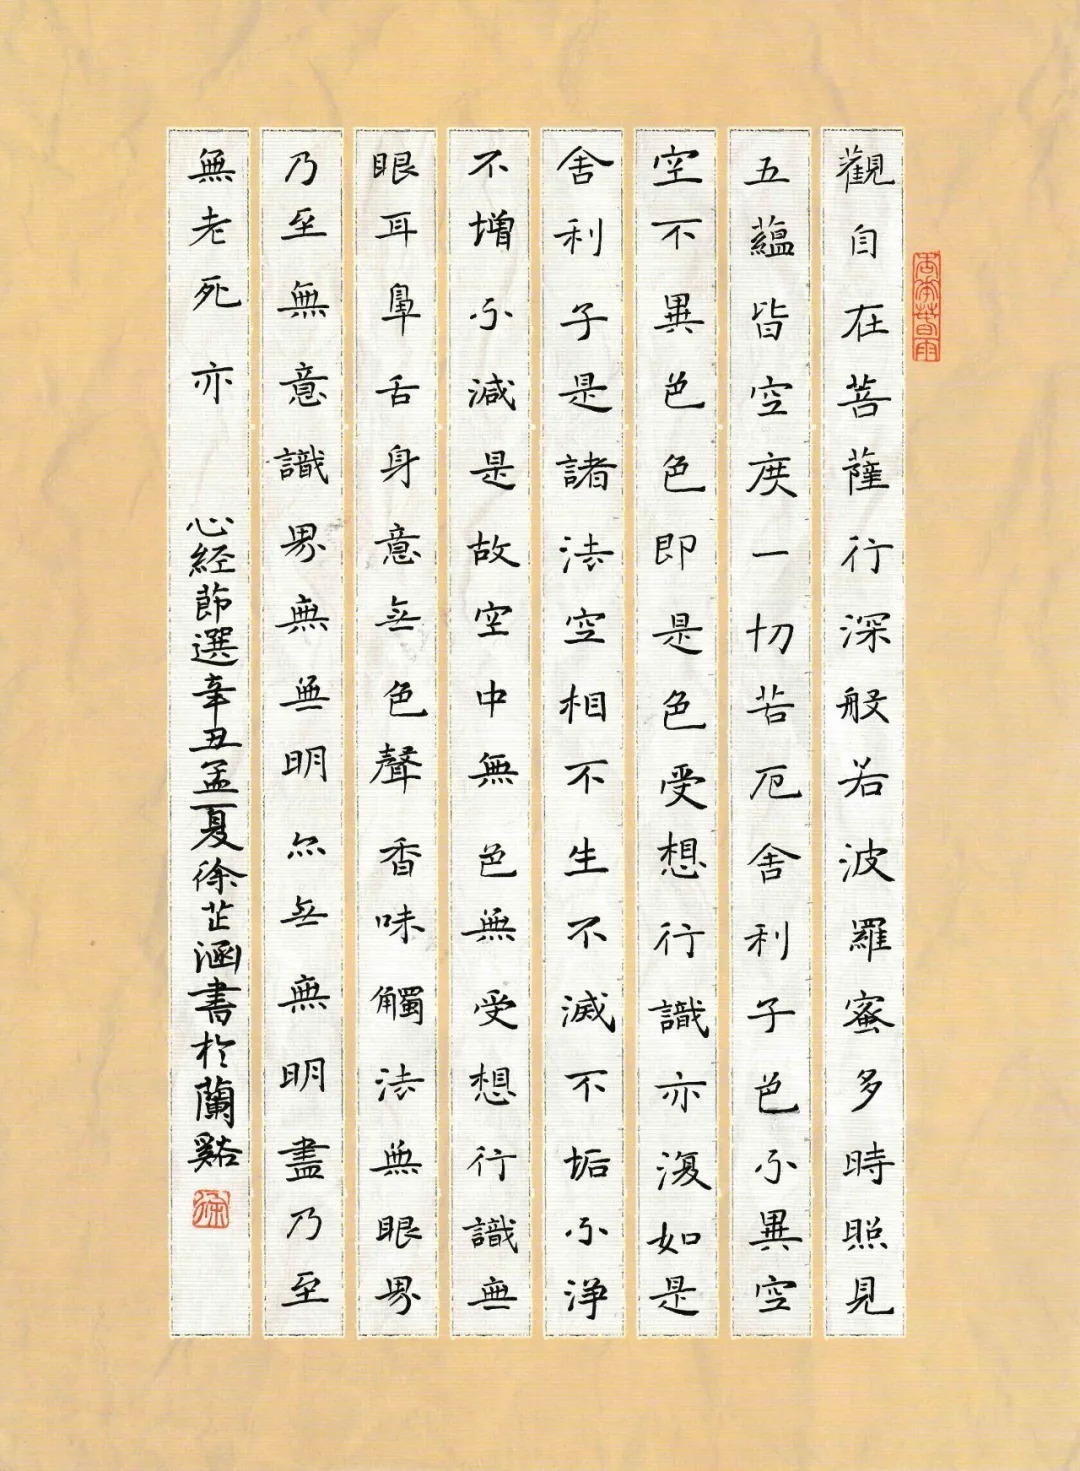 觀自在菩薩行深般若波羅蜜多時照見
五蘊皆空度一切苦厄舍利子色不異空
空不異色色即是色受想行識亦復如是
舍利子是諸法空相不生不滅不垢不淨
不增不減是故空中無色無受想行識無
眼耳鼻舌身意無色聲香味觸法無眼界
乃至無意識界無無明亦無無明盡乃至
無老死亦
心經節選辛丑孟夏徐芷涵書於蘭谿
徐